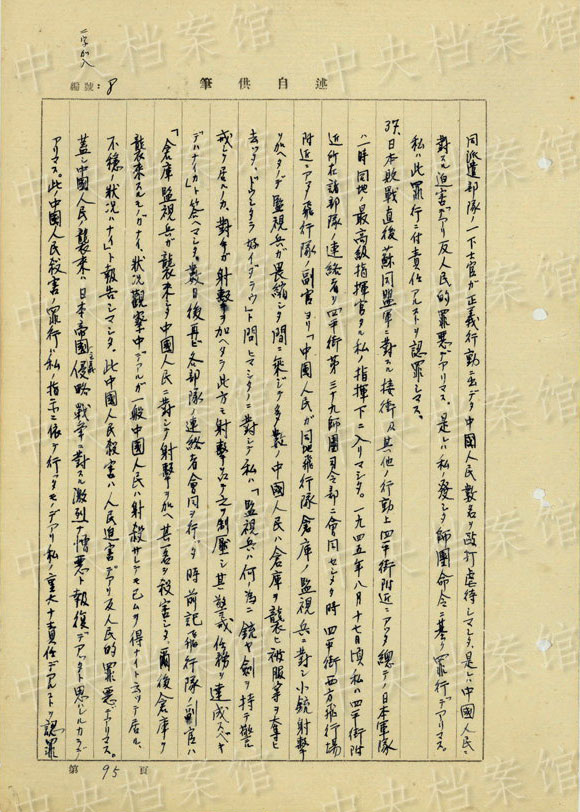 中央档案馆
二字加入
編號：8
筆供自述
同派遣部隊ノ一下士官が正義行動ニ出デタ中國人民数名ヲ殴打虐待シマシタ、是レハ中國人民ニ
對スル迫害デアリ反人民的罪悪デアリマス。是レハ私ノ發シタ師團命令ニ基ク罪行デアリマス。
私ハ此罪行ニ付責任アルヿヲ認罪シマス。
37、日本敗戰直後蘇同盟軍ニ對スル接衝及其他ノ行動上四平街附近ニアッタ總テノ日本軍隊
ハ一時同地ノ最高級指揮官タル私ノ指揮下ニ入リマシタ。一九四五年八月十七日頃私ハ四平街附
近所在諸部隊ノ連絡者ヲ四平街第三十九師團司令部ニ會同セシメタ時四平街西方飛行場
附近ニアッタ飛行隊ノ副官ヨリ「中國人民が同地飛行隊倉庫ノ監視兵ニ對シ小銃射撃
ヲ加ヘタノデ監視兵が畏縮シタ間ニ乗ジテ多数ノ中國人民ハ倉庫ヲ襲ヒ被服等ヲ奪ヒ
去ッタ、ドウシタラ好イダラウ」ト問ヒマシタノニ對シテ私ハ「監視兵ハ何ノ為ニ銃ヤ剣ヲ持テ警
戒シテ居ルカ、對手が射撃ヲ加ヘタラ此方モ射撃シテ之ヲ制壓シ其警戒任務ヲ達成スベキ
デハナイカ」ト答ヘマシタ。数日後再ビ各部隊ノ連絡者會同ヲ行ッタ時前記飛行隊ノ副官ハ
「倉庫監視兵が襲来シタ中國人民ニ對シテ射撃ヲ加ヘ其一名ヲ殺害シタ、爾後倉庫ヲ
襲来スルモノガナイ、状況觀察中デアルが一般中國人民ハ射殺サレテモ已ムヲ得ナイト云ッテ居ル、
不穏ノ状況ハナイ」ト報告シマシタ。此中國人民殺害ハ人民迫害デアリ反人民的罪悪デアリマス。
蓋シ中國人民ノ襲来ハ日本帝國主義侵略戰爭ニ對スル激烈ナ憎悪ト報復デアッタト思ハレルカラデ
アリマス。此中國人民殺害ノ罪行ハ私ノ指示ニ依テ行ッタモノデアリ私ノ重大ナ責任デアルヿヲ認罪
第 95 頁